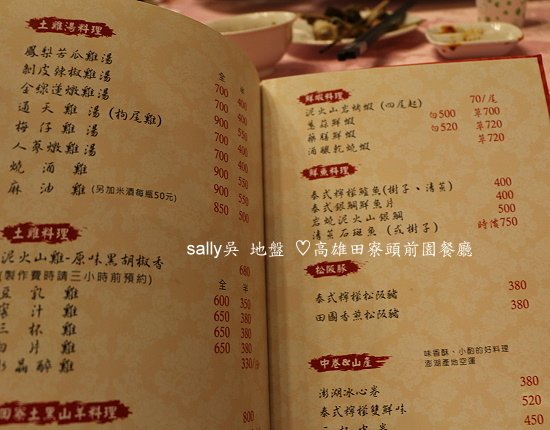 土雞湯料理
全 半
鳳梨苦瓜雞湯 700 400
剝皮辣椒雞湯 700 400
金線蓮燉雞湯 900 500
通天雞湯(拘尾雞) 900 500
梅仔雞湯 700 400
人蔘燉雞湯 900 500
燒酒雞 900 500
麻油雞(另加米酒每瓶50元) 850 500
土雞料理
泥火山雞-原味黑胡椒香 680
(製作費時請三小時前預約)
全 半
豆乳雞 600 350
蜜汁雞 650 380
三杯雞 650 380
白片雞
水晶醉雞 330/份
田寮土黑山羊料理
800
450
鮮蝦料理
泥火山岩烤蝦(四尾起) 70/尾
蔥蒜鮮蝦 勻500 草700
藥膳鮮蝦 勻520 草720
酒釀乾燒蝦 草720
鮮魚料理
泰式檸檬鱸魚(樹子、清蒸) 400
泰式銀鯛鮮魚片 400
岩燒泥火山銀鯛 500
清蒸石斑魚(或樹子) 時價750
sally吳 地盤 ♡高雄田寮頭前園餐廳
松阪豚
泰式檸檬松阪豬 380
田園香蔥松阪豬 380
中卷&山產
味香酥、小酌的好料理
澎湖產地空運
澎湖冰心卷 380
泰式檸檬雙鮮味 520
450